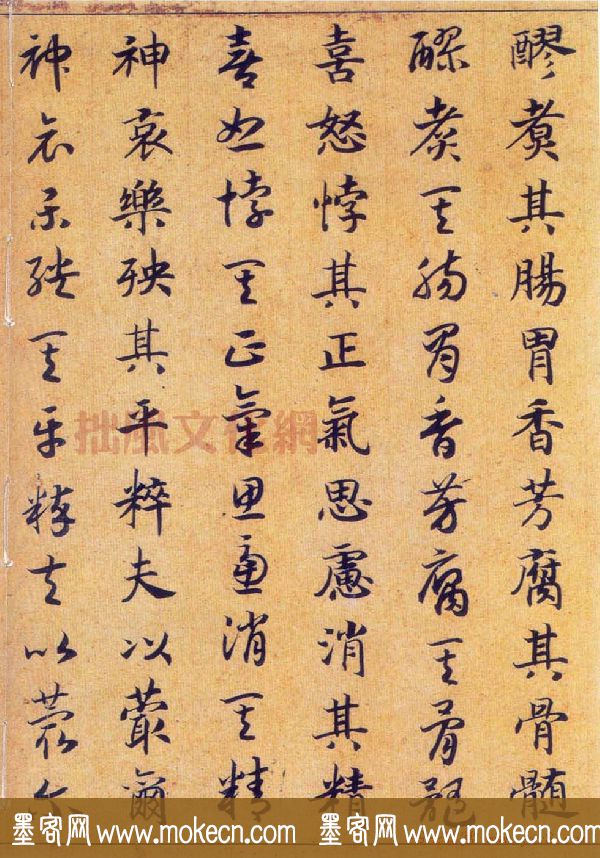 醪煑其腸胃香芳腐其骨髓
醪煑其腸胃香芳腐其骨髓
喜怒悖其正氣思慮消其精
喜怒悖其正氣思慮消其精
神哀樂殃其平粹夫以蕞爾
神哀樂殃其平粹夫以蕞爾
拙風文化網
墨客网 www.mokecn.com 墨客网 www.mokecn.com